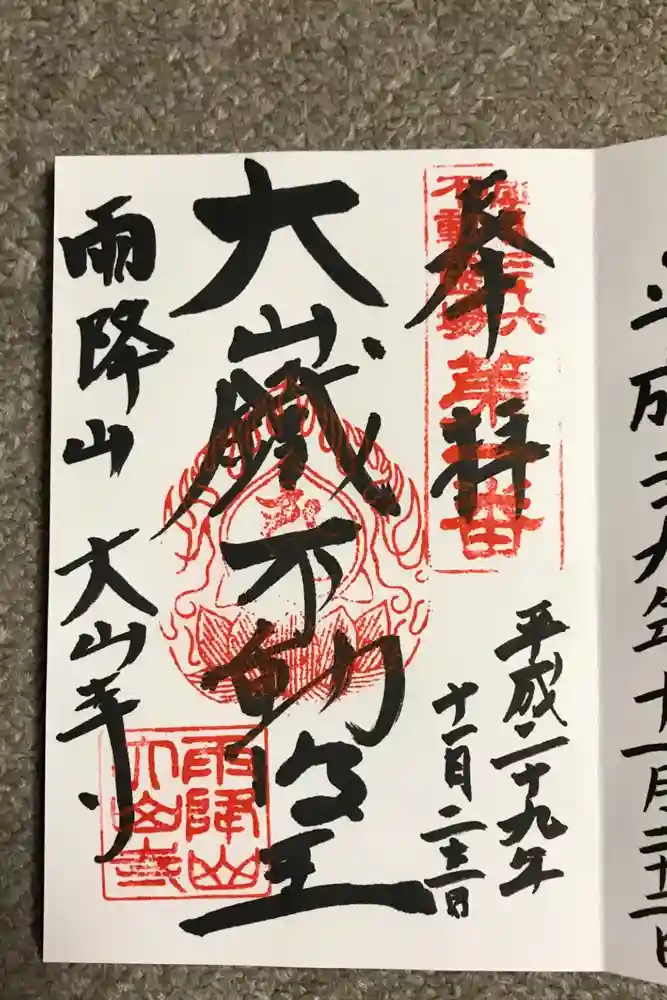 平成二九年十一月二十二日
奉拝
関東三十六
不動霊場
第一番
平成二十九年
十一月二十三日
大山鐵不動明王
雨降山 大山寺
雨降山
大山寺